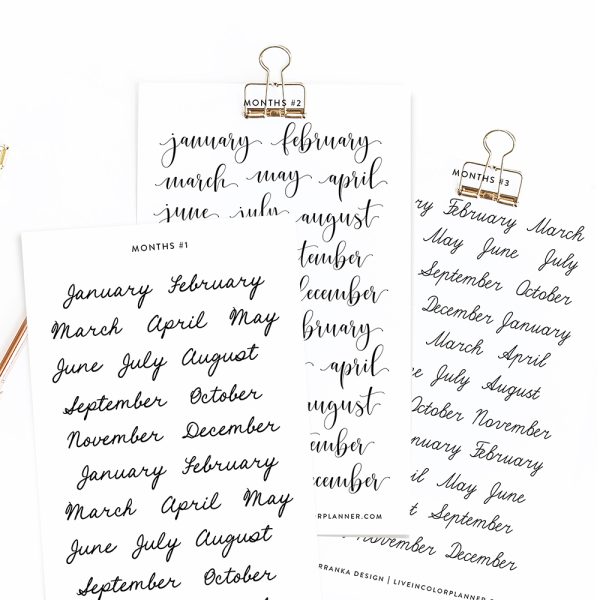 MONTHS #1
January February
March April May
June July August
September October
November December
January February
March April May
June July August
September October
MONTHS #2
january february
march may april
june july august
tember
december
bruary
april
august
ember
december
ORPLANNER.COM
MONTHS #3
ry February March
May June July
September October
December January
March April
e July August
October November
anuary February
il May June
t September
November December
RRANKA DESIGN | LIVEINCOLORPLANNER.